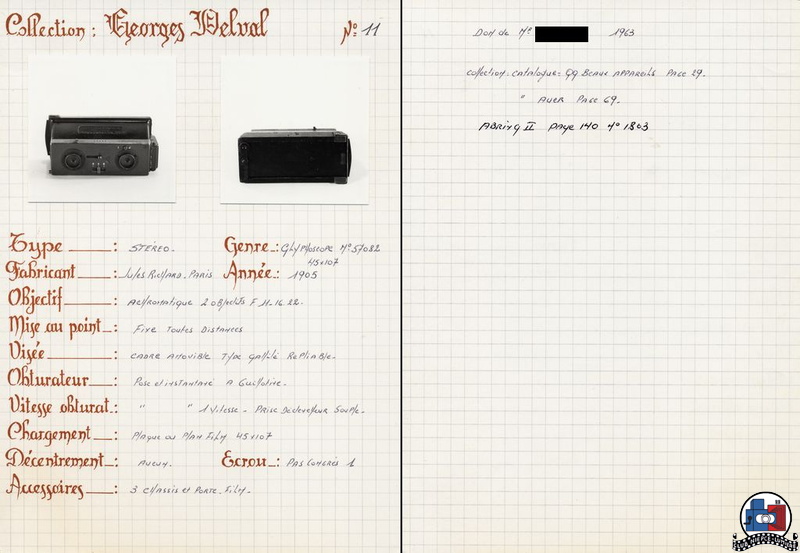 Collection : Georges Delval
N° 11
Type : STÉRÉO.
Genre : GLYPHOSCOPE N° 57082
45x107
Fabricant : Jules Richard. PARIS
Année : 1905
Objectif : ACHROMATIQUE 2 OBJECTIFS F. 11-16.22.
Mise au point : FIXE TOUTES DISTANCES
Visée : CADRE AMOVIBLE TYPE GALILÉ REPLIABLE.
Obturateur : Pose et instantané A Guillotine.
Vitesse obturat : " " 1 Vitesse - PRISE DECLENCHEUR SOUPLE.
Chargement : Plaque ou Plan Film 45x107
Décentrement : AUCUN.
Ecrou : PAS CONGRÈS 1
Accessoires : 3 CHASSIS ET PORTE. FILM.
DON de Mr 1963
collection: catalogue: QQ BEAUX APPAREILS PAGE 29.
" AUER PAGE 69.
ABRING II PAGE 140 N° 1803